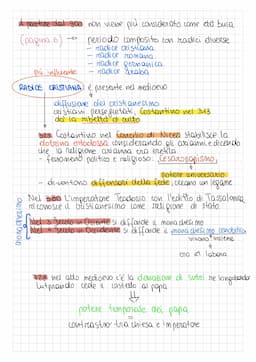 A partire dal 300 non viene più considerato come età buia
(pagina 6) → periodo composito con radici diverse
- radice cristiana
- radice romana
- radice germanica
- radice araba
più influente
RADICE CRISTIANA: è presente nel medioevo
diffusione del cristianesimo
cristiani perseguitati, Costantino nel 313
dà la libertà di culto
325 Costantino nel Concilio di Nicea stabilisce la
dottrina ortodossa considerando gli ariani e dicendo
che la religione ariana era eretica
- fenomeno politico e religioso: Cesaropapismo,
potere universale
- diventano difensori della fede, creano un legame
Nel 380 L'imperatore Teodosio con l'editto di Tessalonica
riconosce il cristianesimo come religione di stato
monachesimo
Nel 3 secolo in Oriente si diffonde il monachesimo
Nel 4 secolo in Occidente si diffonde il monachesimo cenobitico
vivano insieme
ora et labora
728 nell alto medioevo c'è la donazione di Sutri re longobardo
Liutprando cede il castello al papa
potere temporale del papa
=
contrasto tra chiesa e imperatore